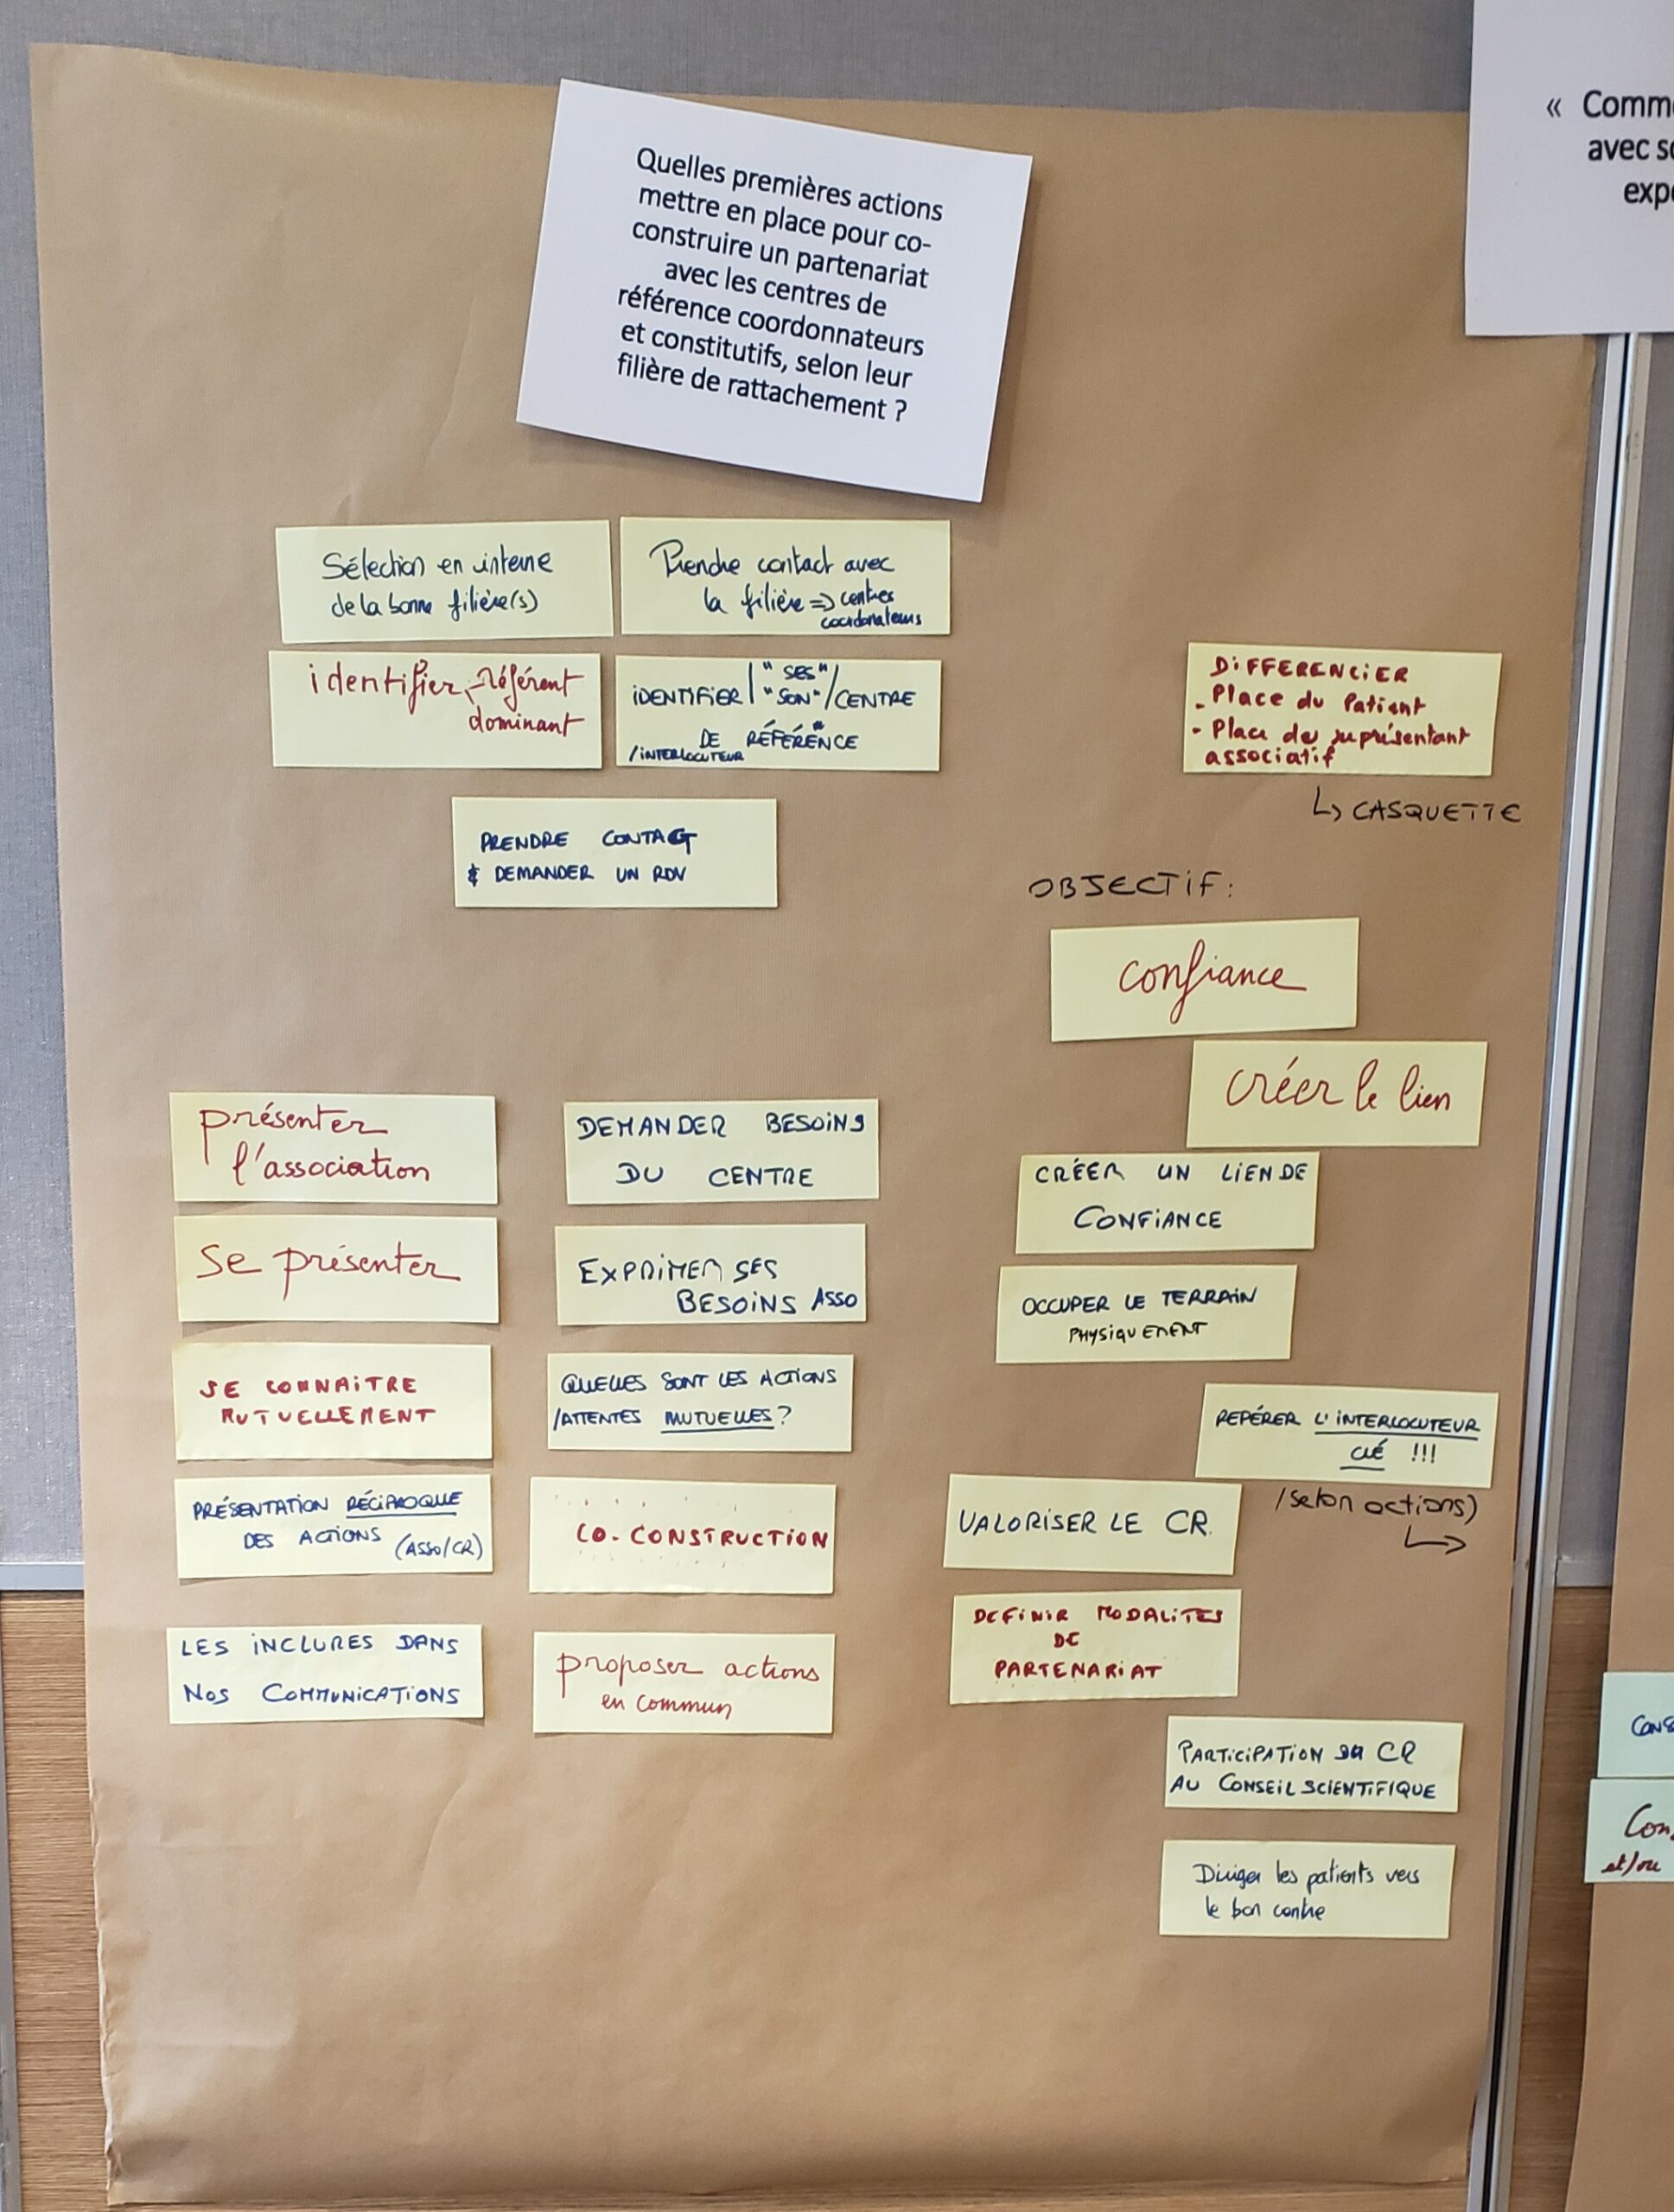 Quelles premières actions
mettre en place pour co-
construire un partenariat
avec les centres de
référence coordonnateurs
et constitutifs, selon leur
filière de rattachement ?
« Comm
avec so
expe
Sélection en interne
de la bonne filière(s)
Prendre contact avec
la filière => centres
coordonateurs
identifier - référent
dominant
"SES"/
IDENTIFIER / "SON" / CENTRE
DE RÉFÉRENCE
/INTERLOCUTEUR
DIFFERENCIER
- Place du Patient
- Place du représentant
associatif
↳ CASQUETTE
PRENDRE CONTACT
& DEMANDER UN RDV
OBJECTIF :
confiance
créer le lien
CRÉER UN LIEN DE
CONFIANCE
OCCUPER LE TERRAIN
PHYSIQUEMENT
REPÉRER L'INTERLOCUTEUR
CLÉ !!!
/selon actions)
VALORISER LE CR.
DEFINIR MODALITES
DE
PARTENARIAT
PARTICIPATION DU CR
AU CONSEIL SCIENTIFIQUE
Diriger les patients vers
le bon centre
présenter
l'association
se présenter
SE CONNAITRE
MUTUELLEMENT
PRÉSENTATION RÉCIPROQUE
DES ACTIONS (ASSO/CR)
LES INCLURES DANS
NOS COMMUNICATIONS
DEMANDER BESOINS
DU CENTRE
EXPRIMER SES
BESOINS ASSO
QUELLES SONT LES ACTIONS
/ATTENTES MUTUELLES ?
CO-CONSTRUCTION
proposer actions
en commun
CONS
Con
et/ou